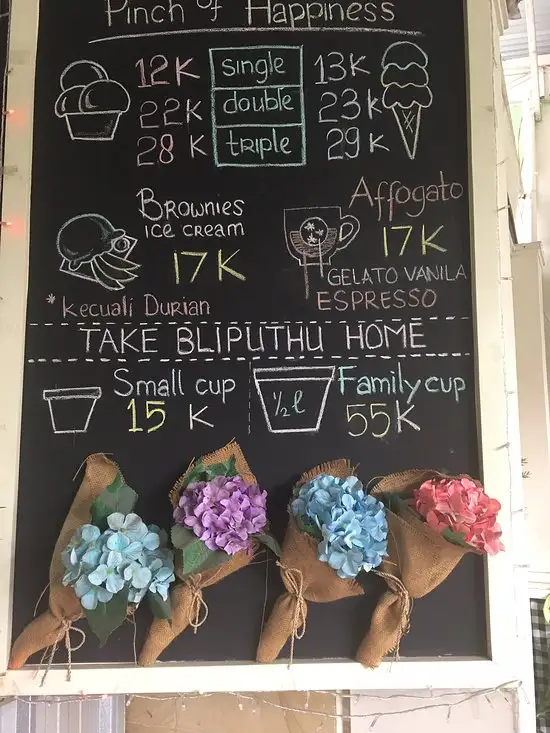 Pinch of Happiness
12K single 13K
22K double 23K
28K triple 29K
Brownies
ice cream
17K
* Kecuali Durian
Affogato
17K
GELATO VANILA
ESPRESSO
TAKE BLIPUTHU HOME
Small cup
15 K
½ l
Family cup
55K